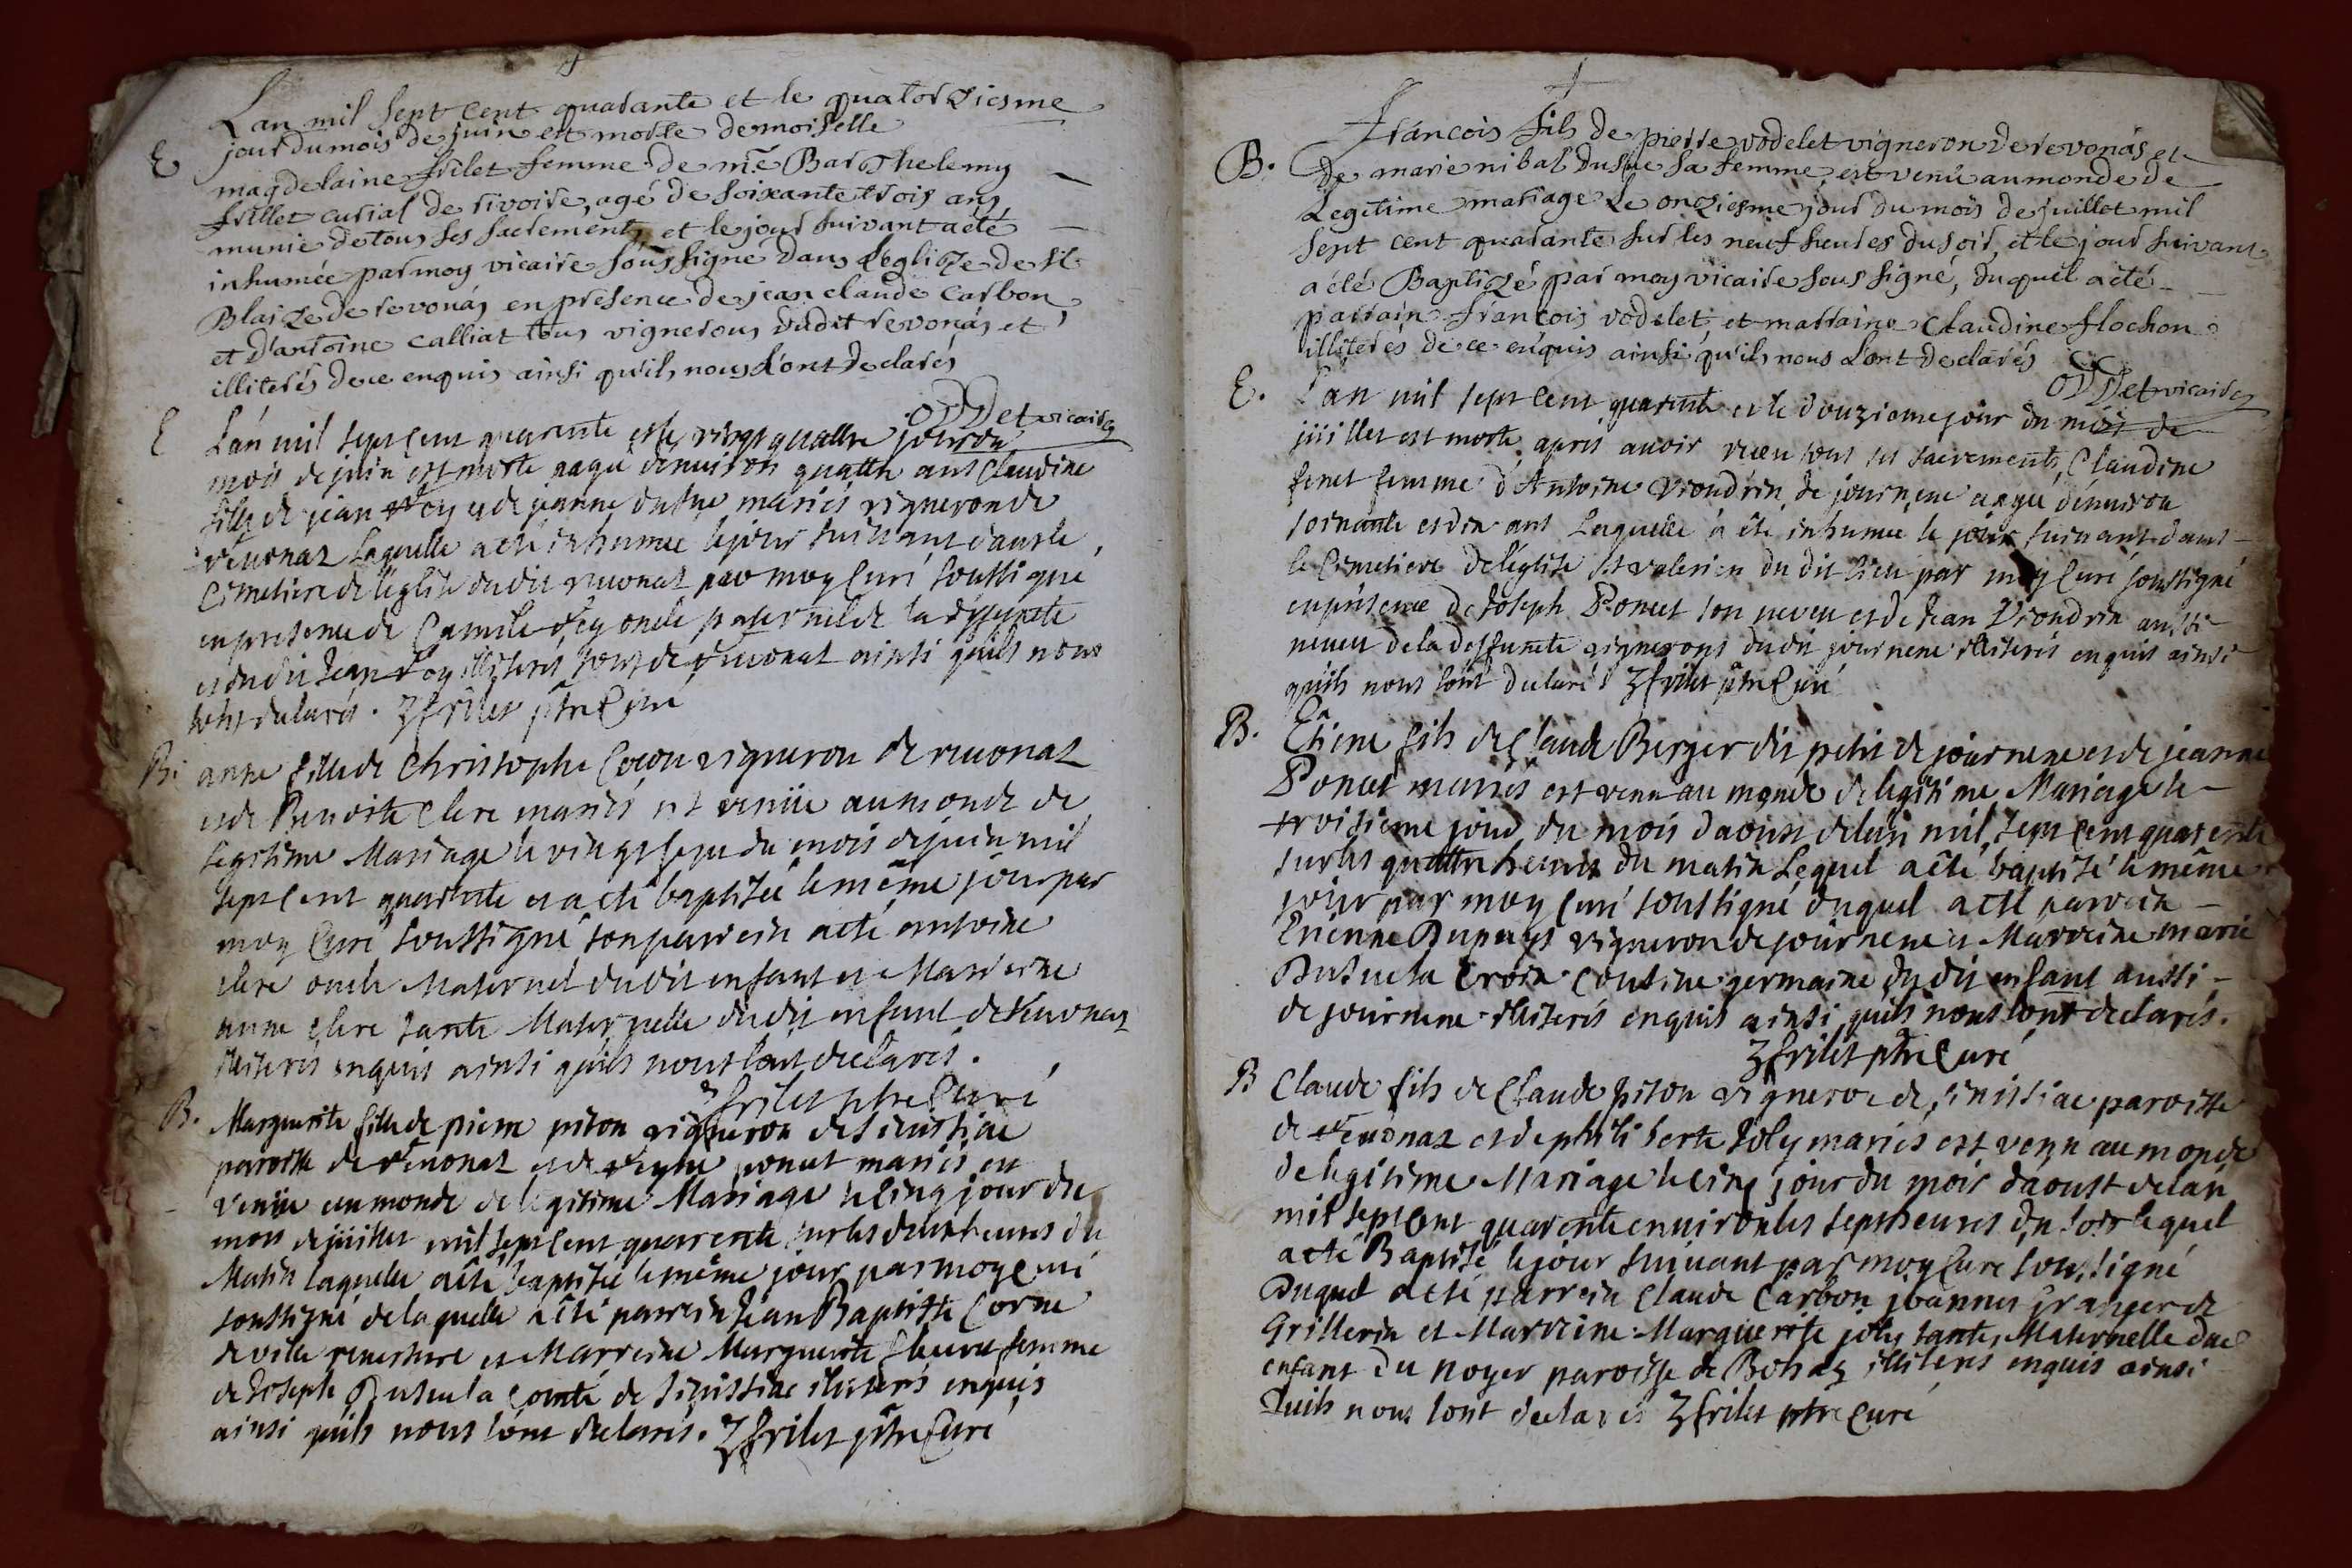 Lan mil sept cent quarante et le quatorziesme
jour du mois de juin est morte demoiselle
E
magdelaine frilet femme de me Barthelemy
frillet curial de rivoire, agé de soixante trois ans,
munie de tous ses sacrements et le jour suivant a été
inhumée par moy vicaire soussigné dans l'eglize de st
Blaize de revonás en presence de jean claude Carbon,
et d'antoine Calliat tous vignerons dudit revonás et
illiterés de ce enquis ainsi qu'ils nous l'ont declarés
oDDet vicaire
E
L'an mil sept cent quarente et le vingt quattre jour du
mois de juin est morte aagé denuiron quattre ans Claudine
fille de jean Rey et de jeanne dusue mariés vigneron de
reuonaz Laquelle a eté inhumée le jour suiuant dans le
Cimetiere de l'eglise dudit reuonaz par moy Curé soussigné
en presence de Camile Rey oncle paternel de la deffuncte
et dudit Jean Rey illiterés tous de reuonaz ainsi quils nous
lont declarés. Zfrilet ptre Curé
B. anne fille de Christophe Cocon vigneron de reuonaz
et de Benoite Clere mariés est venüe au monde de
Legitime Mariage le vingt sept du mois de juin mil
sept cent quarente et a eté baptisée le même jour par
moy Curé soussigné son parrein a eté antoine
clere oncle Maternel dudit enfant et Marreine
anne clere tante Maternelle dudit enfant de Reuonaz
illiterés enquis ainsi quils nous lont declarés.
Zfrilet ptre Curé
B. Marguerite fille de pierre piton vigneron de senissiac
paroisse de Reuonaz et de Reyne poncet mariés est
venüe au monde de legitime Mariage le cinq jour du
mois de jüillet mil sept cent quarente sur les deux heures du
Matin laquelle a êté baptisée le même jour par moy Curé
soussigné de laquelle a êté parrein Jean Baptiste Corne
de ville reuersure et Marreine Marguerite femme
de Joseph Dusue la Comté de senissiac illiterés enquis
ainsi quils nous lont declarés. Zfrilet ptre Curé
B. Francois fils de pierre vodelet vigneron de revonás et
de marie nibal dusue sa femme, est venû au monde de
Legitime mariage le onziesme jour du mois de juillet mil
sept cent quarante sur les neuf heures du soir, et le jour suivant
a été Baptizé par moy vicaire soussigné, duquel a été
parrain francois vodelet, et marraine Claudine flochon
illiterés de ce enquis ainsi qu'ils nous l'ont declarés
oDDet vicaire
E. L'an mil sept cent quarente et le douzieme jour du mois de
jüillet est morte apres auoir receu tous ses sacrements Claudine
femme d'Antoine Vrondrin de journene aagé denuiron
soixante et dix ans Laquelle à été inhumée le jour suiuant dans
le Cimetiere de léglise st valerien du dit lieu par moy Curé soussigné
en présence de Joseph Poncet son neueu et de Jean Vrondrin aussi
neueu de la deffuncte vignerons dudit journene illiterés enquis ainsi
quils nous lont declarés Zfrilet ptre Curé
B. Etiene fils de Claude Berger dit petit de journene et de jeanne
Poncet mariés est venu au monde de legitime Mariage le
troisieme jour du mois daoust de lan mil sept cent quarente
sur les quattre heures du matin Lequel a êté baptisé le même
jour par moy Curé soussigné duquel a eté parrein
Etienne Dupuys vigneron de journene et Marreine marie
Dusue la Croix Cousine germaine du dit enfant aussi
de journene illiterés enquis ainsi quils nous lont declarés.
Zfrilet ptre Curé
B Claude fils de Claude piton vigneron de senissiac paroisse
de Reuonaz et de philiberte Joly mariés est venu au monde
de legitime Mariage le cinq jour du mois daoust de lan
mil sept cent quarente enuiron les sept heures du soir lequel
a eté Baptisé le jour suiuant par moy Curé soussigné
Duquel a eté parrein Claude Carbon joannes granger de
Grillerin et Marreine Marguerite joly tante Maternelle dud
enfant du noyer paroisse de Bohaz illiterés enquis ainsi
Quils nous lont declarés Zfrilet ptre Curé